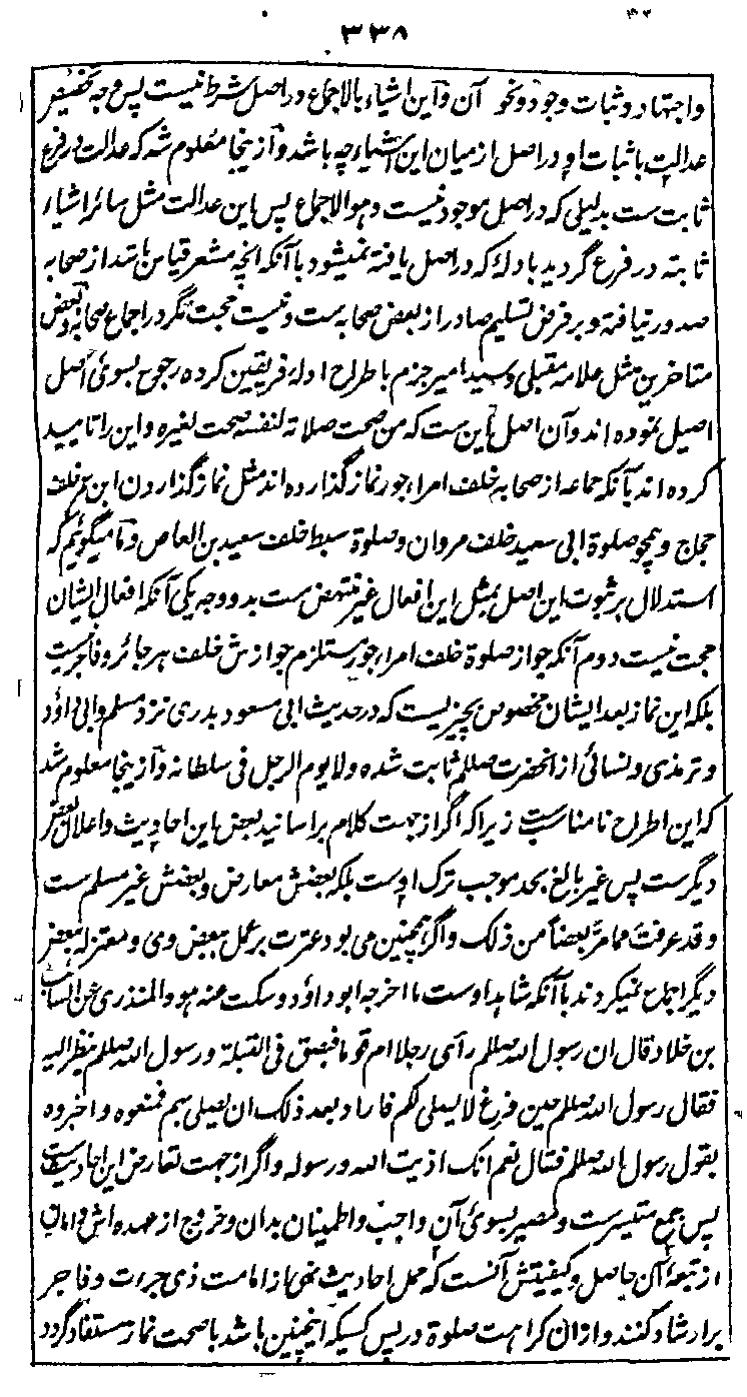 ۳۳۸
واجتهاد و ثبات وجود و نحو آن و این اشیاء بالاجماع در اصل شرط نیست پس وجه تخصیص
عدالت باثبات او در اصل از میان این اشیاء چه باشد و ازینجا معلوم شد که عدالت در فرع
ثابت ست بدلیلی که در اصل موجود نیست و هو الاجماع پس این عدالت مثل سائر اشیاء
ثابته در فرع گردید بادله که در اصل یافته نمیشود با آنکه انچه مشعر قیاس باشد از صحابه
صدور نیافته و بر فرض تسلیم صادر از بعض صحابه ست و نیست حجت مگر در اجماع صحابه و بعض
متاخرین مثل علامه مقبلی و سید امیر جزم باطراح ادله فریقین کرده رجوع بسوئ اصل
اصیل نموده اند و آن اصل این ست که من صحت صلاته لنفسه صحت لغیره و این را تایید
کرده اند بآنکه جماعه از صحابه خلف امراء جور نماز گذارده اند مثل نماز گذاردن ابن عمر خلف
حجاج و همچو صلوة ابی سعید خلف مروان وصلوة سبط خلف سعید بن العاص و ما میگوئیم که
استدلال بر ثبوت این اصل بمثل این افعال غیر منتهض ست بدو وجه یکی آنکه افعال ایشان
حجت نیست دوم آنکه جواز صلوة خلف امراء جور مستلزم جوازش خلف هر جائر و فاجر نیست
بلکه این نماز بعد ایشان مخصوص بچیزیست که در حدیث ابی مسعود بدری نزد مسلم و ابی داؤد
و ترمذی و نسائی از انحضرت صللم ثابت شده ولا یوم الرجل فی سلطانه و ازینجا معلوم شد
که این اطراح نامناسب ست زیرا که اگر از جهت کلام بر اسانید بعض این احادیث و اعلال بعض
دیگر ست پس غیر بالغ بحد موجب ترک اوست بلکه بعضش معارض و بعضش غیر مسلم ست
وقد عرفت مما مر بعضا من ذلک و اگر همچنین می بود عترت بر عمل ببعض وی و معتزله ببعض
دیگر اجماع نمیکردند با آنکه شاهد اوست ما اخرجه ابو داؤد و سکت عنه هو والمنذری عن السائب
بن خلاد قال ان رسول الله صللم رأی رجلا ام قوما فبصق فی القبلة و رسول الله صللم ینظر الیه
فقال رسول الله صللم حین فرغ لا یصلی لکم فاراد بعد ذلک ان یصلی بهم فمنعوه و اخبروه
بقول رسول الله صللم فقال نعم انک اذیت الله ورسوله و اگر از جهت تعارض این احادیث ست
پس جمع متیسر ست و مصیر بسوئ آن واجب و اطمینان بدان و خروج از عهده اش و امان
از تبعهٔ آن حاصل و کیفیتش آنست که حمل احادیث نهی از امامت ذی جرءت و فاجر
بر ارشاد کنند و ازان کراهت صلوة در پس کسیکه اینچنین باشد با صحت نماز مستفاد گردد